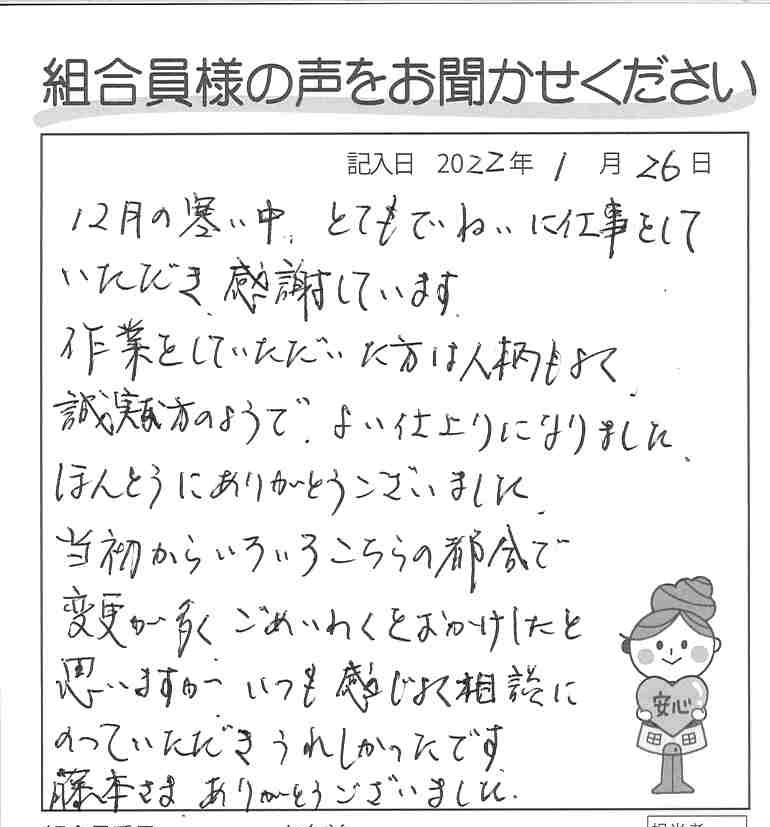 組合員様の声をお聞かせください
記入日 2022年 1月26日
12月の寒い中、とてもていねいに仕事をして
いただき、感謝しています。
作業をしていただいた方は人柄もよく、
誠実な方のようで、よい仕上りになりました。
ほんとうにありがとうございました。
当初からいろいろこちらの都合で
変更が多く ごめいわくをおかけしたと
思いますが いつも感じよく相談に
のっていただき うれしかったです
藤本さま ありがとうございました。
安心